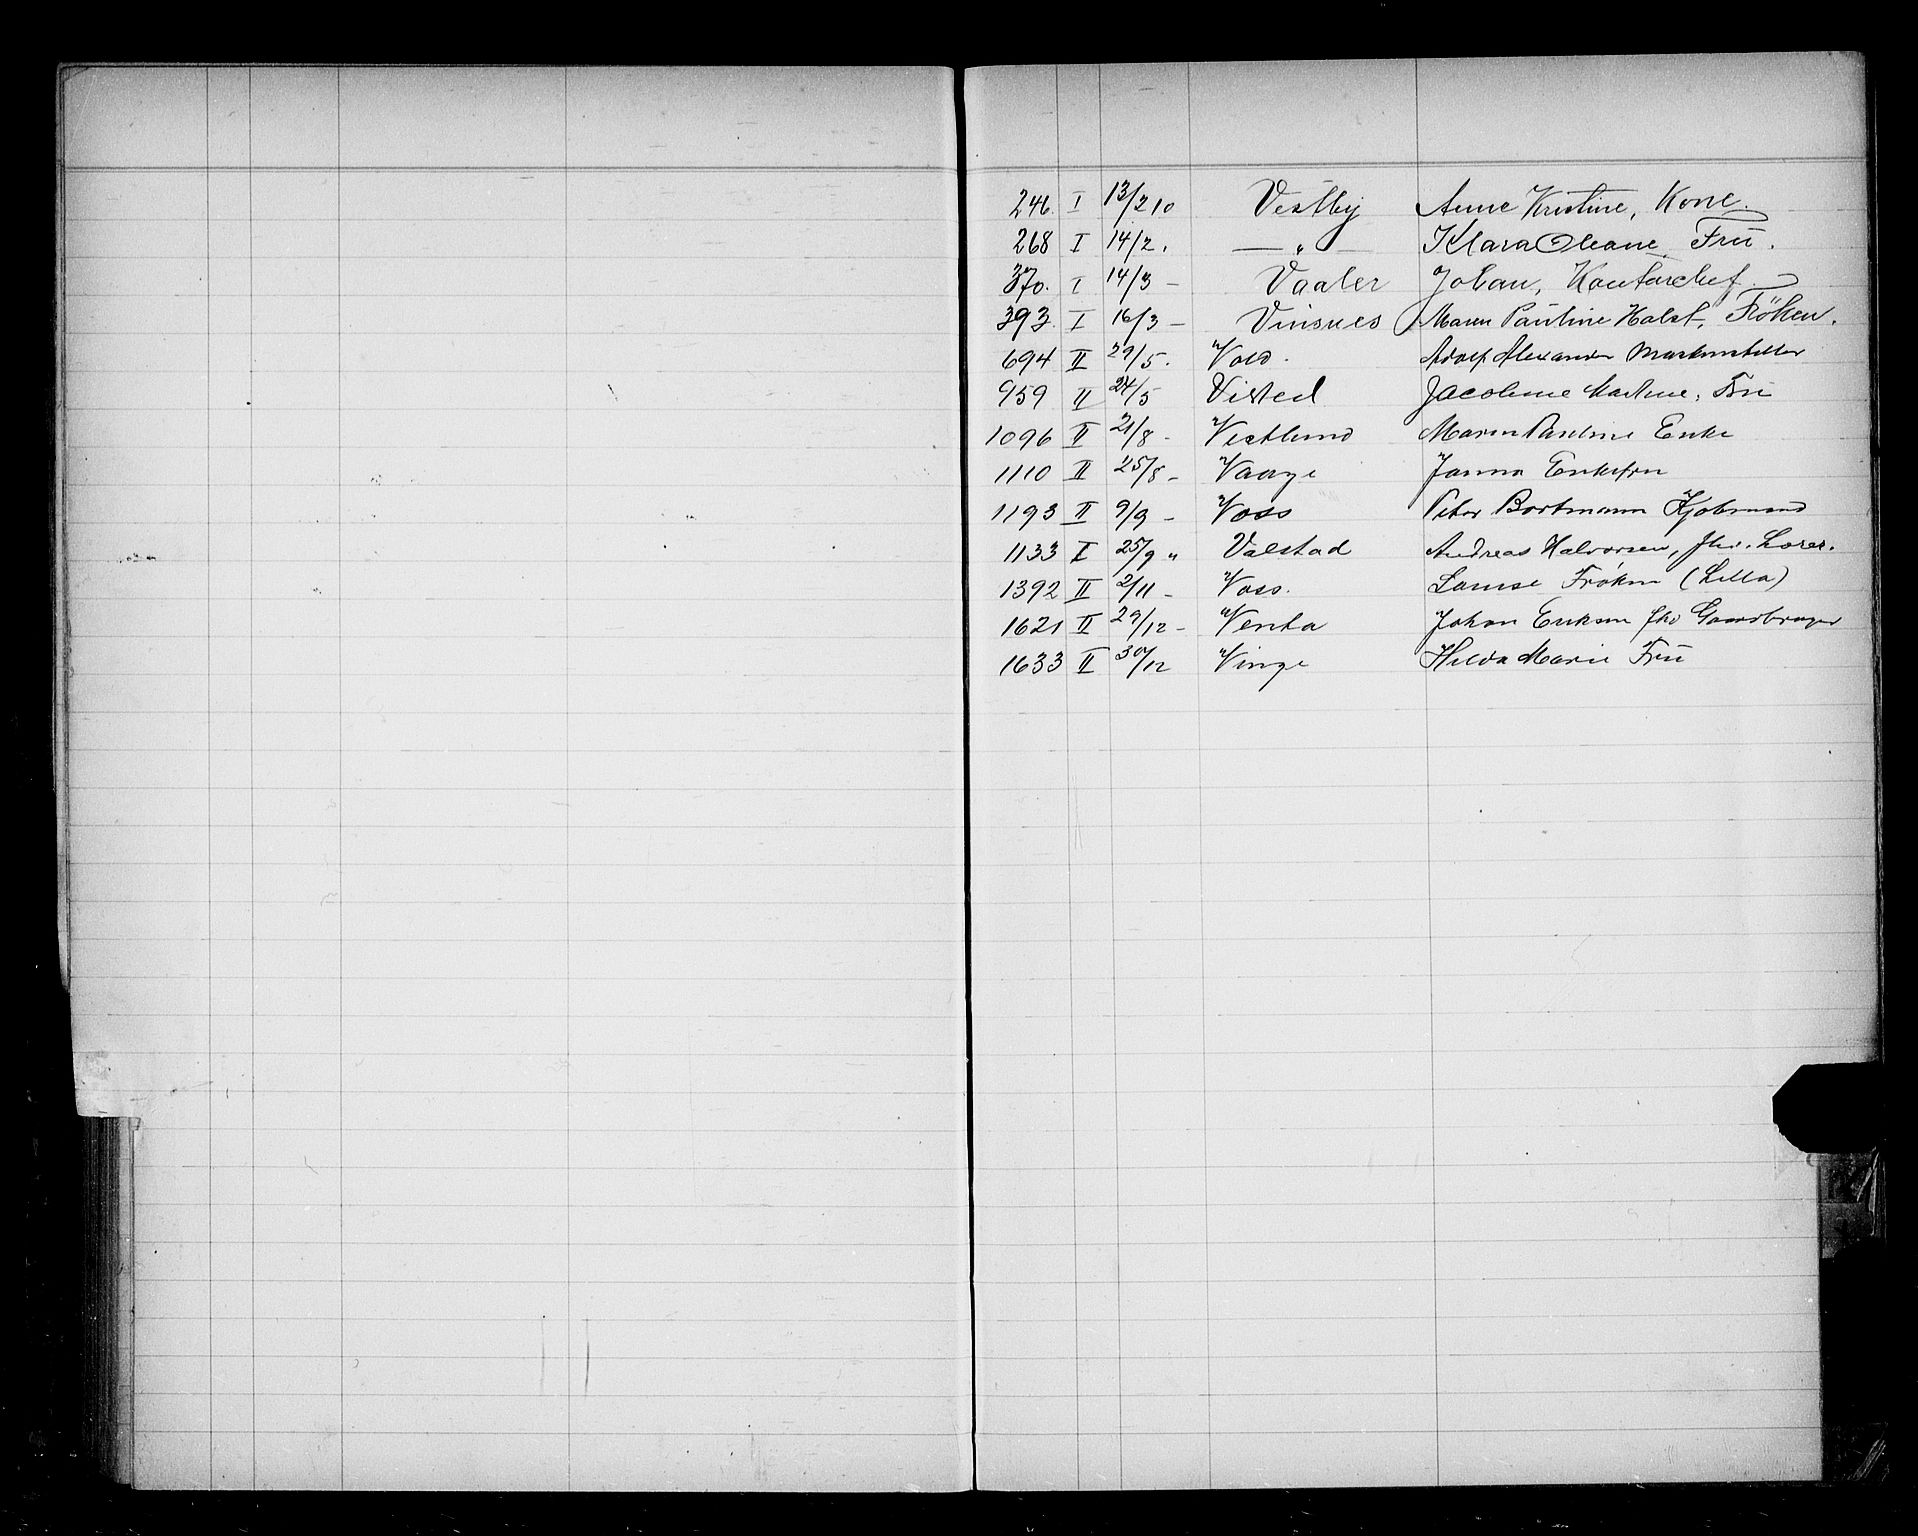 246. I 13/2 10 Vestby Anne Kristine, Kone.
268 I 14/2. — " — Klara Oleane, Frü.
370. I 14/3 — Vaaler Johan, Kontorchef.
393. I 16/3 — Vinsnes Maren Paüline Holst, Fröken.
694 II 29/5. Vold. Adolf Alexander
959 II 24/5 Visted Jacobine Martine, Frü
1096 II 21/8 - Vestlund Maren Pauline Enke
1110 II 25/8 - Vaage Janna Enkefru
1193 II 9/9 - Voss Peter Bortmann Kjøbmand
1133 I 25/9 " Valstad Andreas Halvorsen, fhv. Lærer.
1392 II 2/11 - Voss. Louise Frøken (Lilla)
1621 II 29/12 - Venta Johan Eriksen fhv Gaardbruger
1633 II 30/12 Vinge Hilda Marie Frü